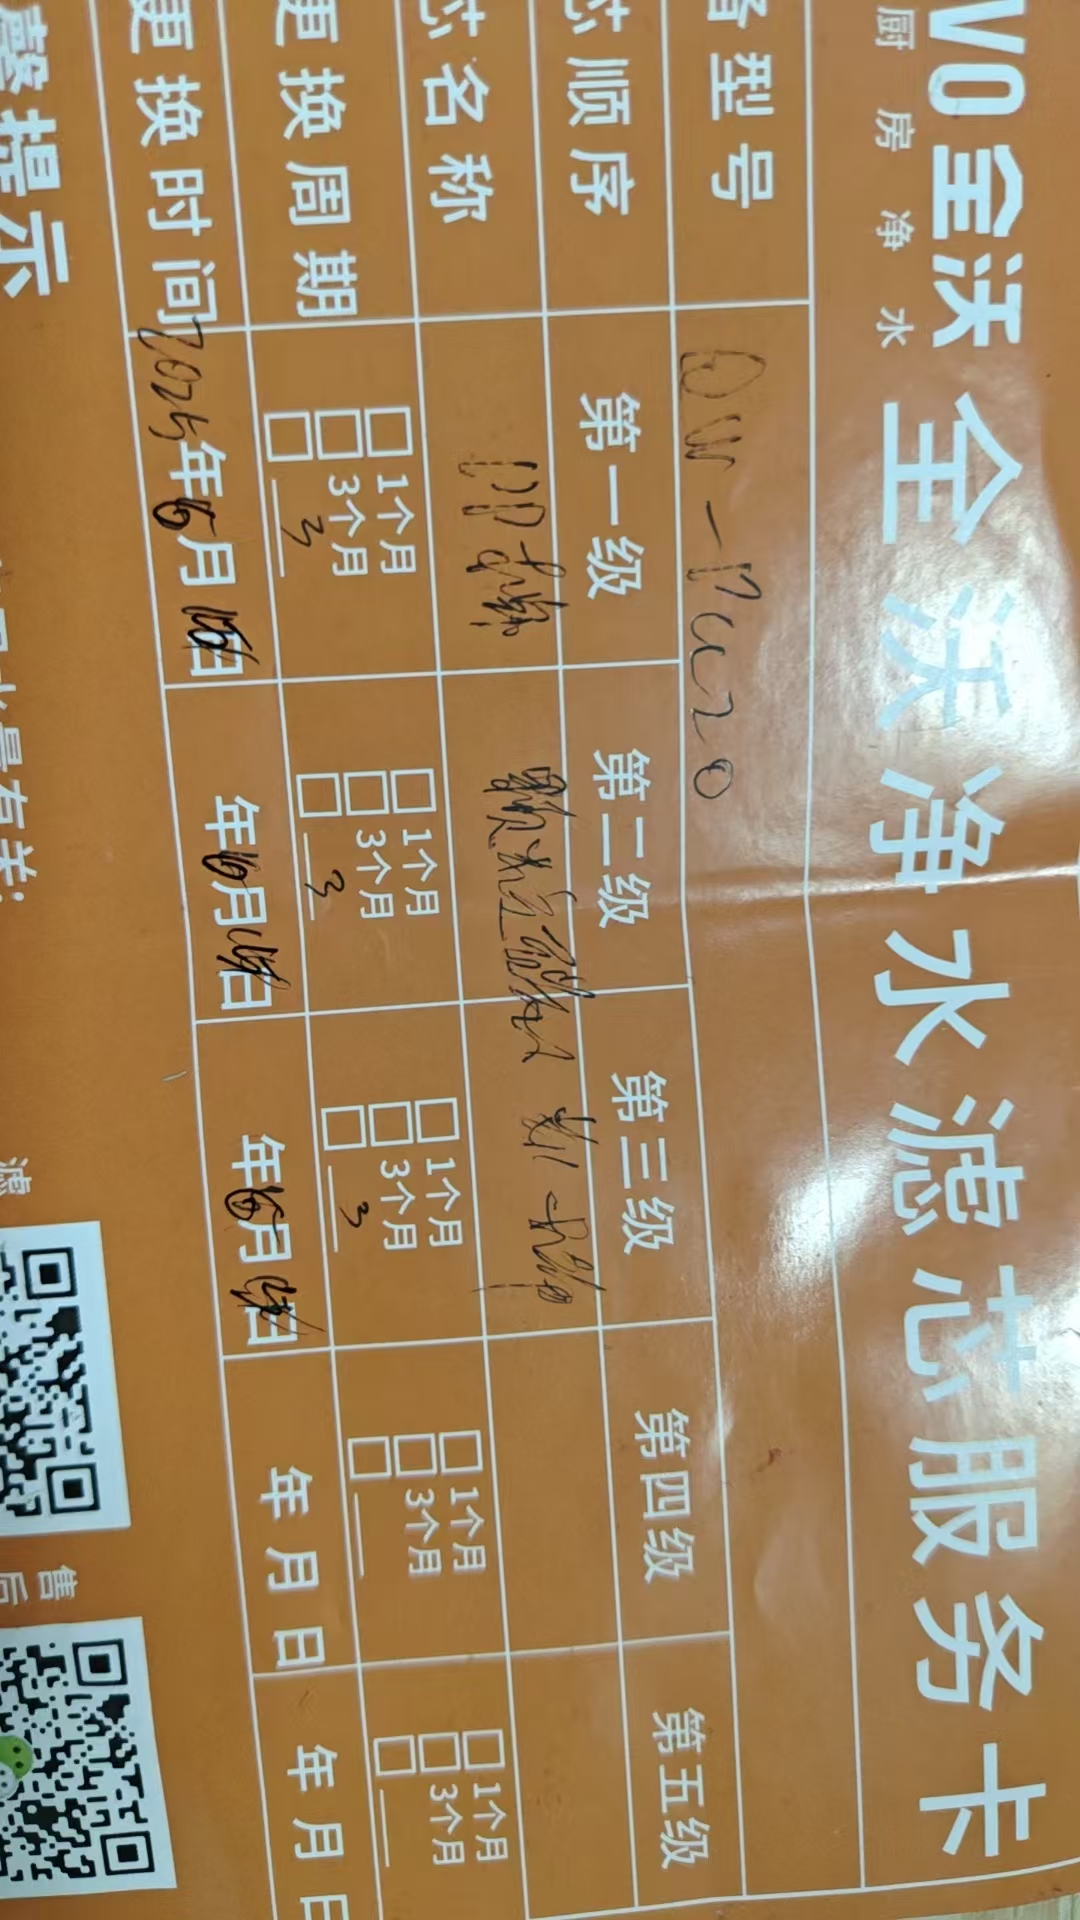 VO全沃
厨房净水
全沃净水滤芯服务卡
型号 QW-RC20
芯顺序 第一级 第二级 第三级 第四级 第五级
芯名称 PP棉
更换周期 □1个月 □1个月 □1个月 □1个月 □1个月
□3个月 □3个月 □3个月 □3个月 □3个月
□ 3 □ 3 □ 3 □ □
更换时间 2025年6月日 年6月日 年6月日 年月日 年月日
馨提示
量有关;
滤
售
后